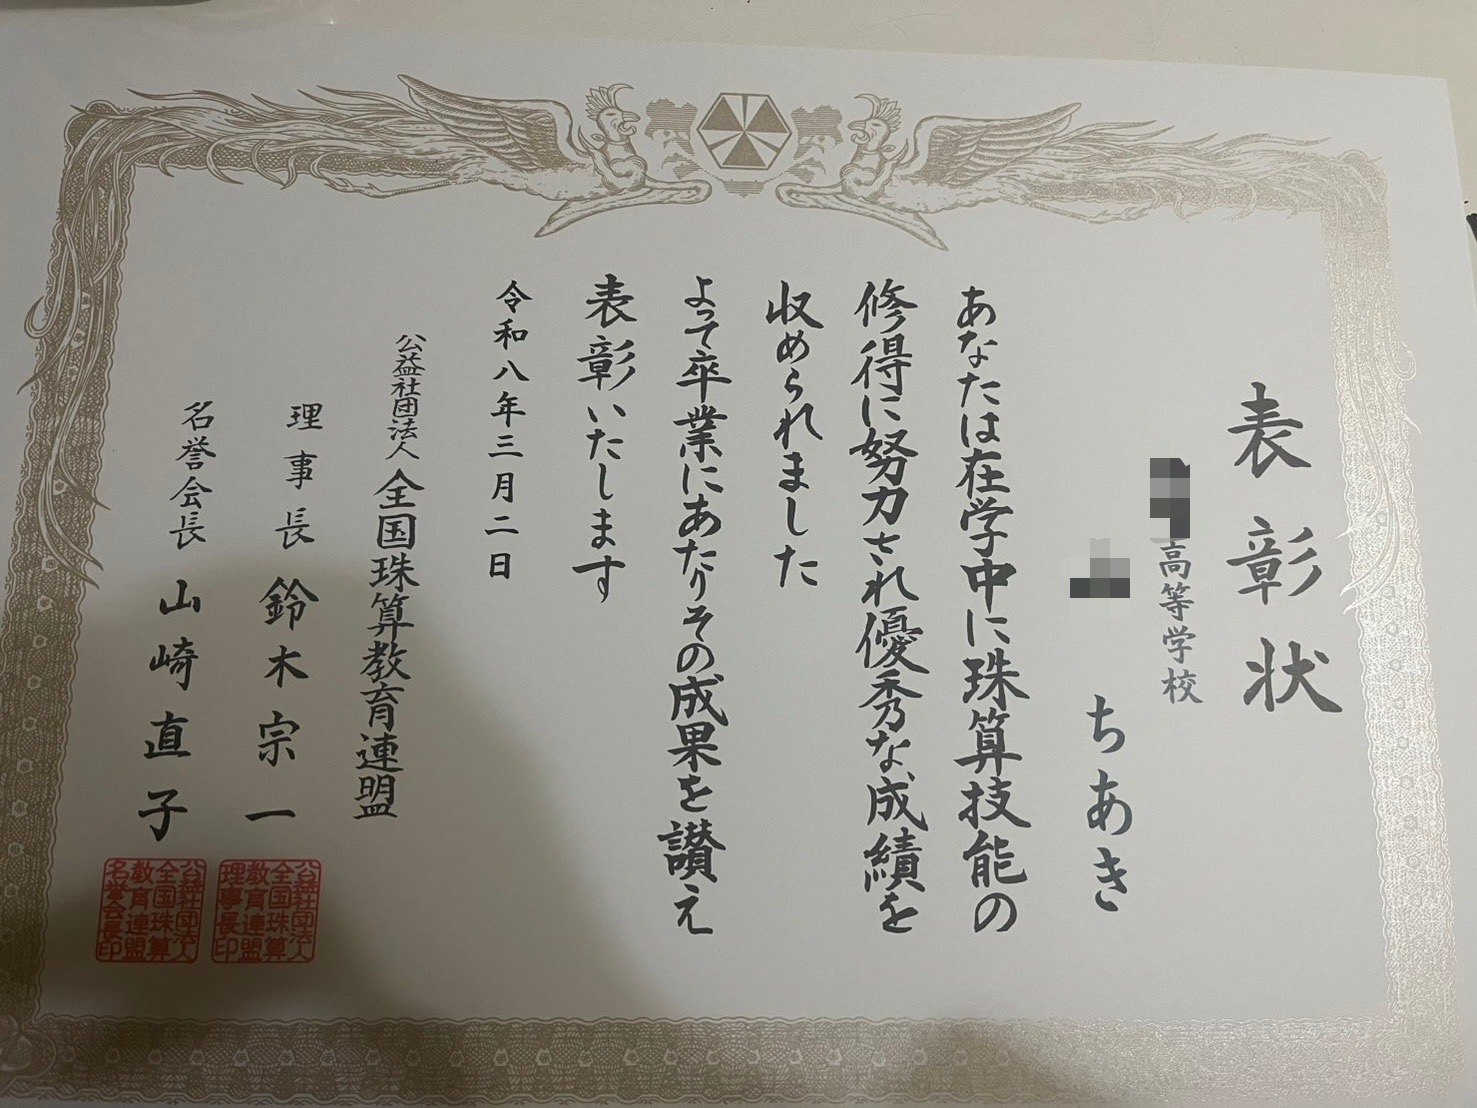 表彰状
高等学校
ちあき
あなたは在学中に珠算技能の
修得に努力され優秀な成績を
収められました
よって卒業にあたりその成果を讃え
表彰いたします
令和八年三月二日
公益社団法人全国珠算教育連盟
理事長 鈴木宗一
公益社団法人全国珠算教育連盟理事長印
名誉会長 山崎直子
公益社団法人全国珠算教育連盟名誉会長印